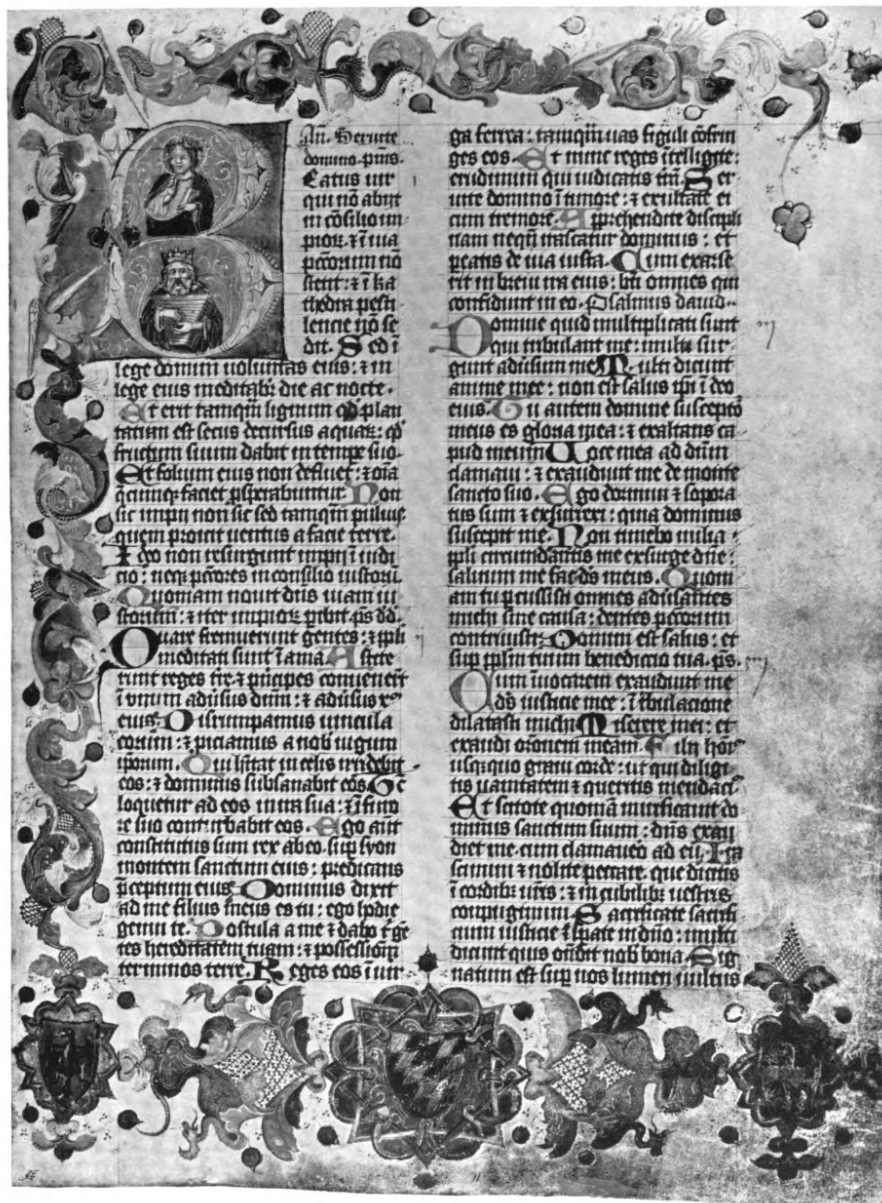 An. Seruite
domino. pms.
Eatus uir
qui nō abijt
in cōsilio im-
pioꝝ. ⁊ ī uia
pccōrum nō
stetit: ⁊ ī ka
thedra pesti
lencie nō se
dit. Sed ī
lege domini uoluntas eius: ⁊ in
lege eius meditabr̄ die ac nocte.
Et erit tamqm̄ lignum qd̄ plan
tatum est secus decursus aquaꝝ: qd̄
fructum suum dabit in tempe suo.
Et folium eius non defluet: ⁊ oīa
qcumqꝫ faciet psperabuntur. Non
sic impij non sic sed tamqm̄ puluis
quem proicit uentus a facie terre.
Ideo non resurgunt impij ī iudi
cio: neqꝫ pccōres in consilio iustorū.
Quoniam nouit dn̄s uiam iu
storum: ⁊ iter impioꝝ pibit. ps̄ dd̄.
Quare fremuerunt gentes: ⁊ ppli
meditati sunt īania. Astite
runt reges tr̄e ⁊ pncipes conuenert̄
ī vnum adūsus dnm̄: ⁊ adūsus xm̄
eius. Disrumpamus uincula
eorum: ⁊ piciamus a nob̄ iugum
ipsorum. Qui hītat in celis irridebit
eos: ⁊ dominus subsanabit eos. Tc
loquetur ad eos in ira sua: ⁊ ī furo
re suo conturbabit eos. Ego aūt
constitutus sum rex ab eo. sup syon
montem sanctum eius: predicans
pceptum eius. Dominus dixit
ad me filius meus es tu: ego hodie
genui te. Postula a me ⁊ dabo t̄ ge
tes hereditatem tuam: ⁊ possessionē
terminos terre. Reges eos ī uir
ga ferrea: tamqm̄ uas figuli cōfrin
ges eos. Et nunc reges ītelligite:
erudimini qui iudicatis tr̄ā. Ser
uite domino ī timore: ⁊ exultate ei
cum tremore. Apprehendite discipli
nam nequn̄ irascatur dominus: et
peatis de uia iusta. Cum exarse
rit in breui ira eius: bt̄i omnes qui
confidunt in eo. Psalmus dauid.
Domine quid multiplicati sunt
qui tribulant me: multi sur
gunt adūsum me. Multi dicunt
anime mee: non est salus ipi ī deo
eius. Tu autem domine susceptor
meus es gloria mea: ⁊ exaltans ca
pud meum. Uoce mea ad dnm̄
clamaui: ⁊ exaudiuit me de monte
sancto suo. Ego dormiui ⁊ sopora
tus sum ⁊ exsurrexi: quia dominus
suscepit me. Non timebo milia
ppli circumdantis me exsurge dn̄e:
saluum me fac ds̄ meus. Quoni
am tu pcussisti omnes adūsantes
michi sine causa: dentes pccōrum
contriuisti. Domini est salus: et
sup pplm tuum benedictio tua. ps̄.
Cum inuocarem exaudiuit me
ds̄ iusticie mee: ī tribulacione
dilatasti michi. Miserere mei: et
exaudi orōnem meam. Filij hom̄
usqꝫquo graui corde: ut qui diligi
tis uanitatem ⁊ queritis mendaciū
Et scitote quoniā mirificauit do
minus sanctum suum: dn̄s exau
diet me. cum clamauero ad eū. Ira
scimini ⁊ nolite peccare. que dicitis
ī cordibꝫ ur̄is: ⁊ in cubilibꝫ uestris
conpungimini. Sacrificate sacrifi
cium iusticie ⁊ sperate in dn̄o: multi
dicunt quis on̄dit nob̄ bona. Sig
natum est sup nos lumen uultus